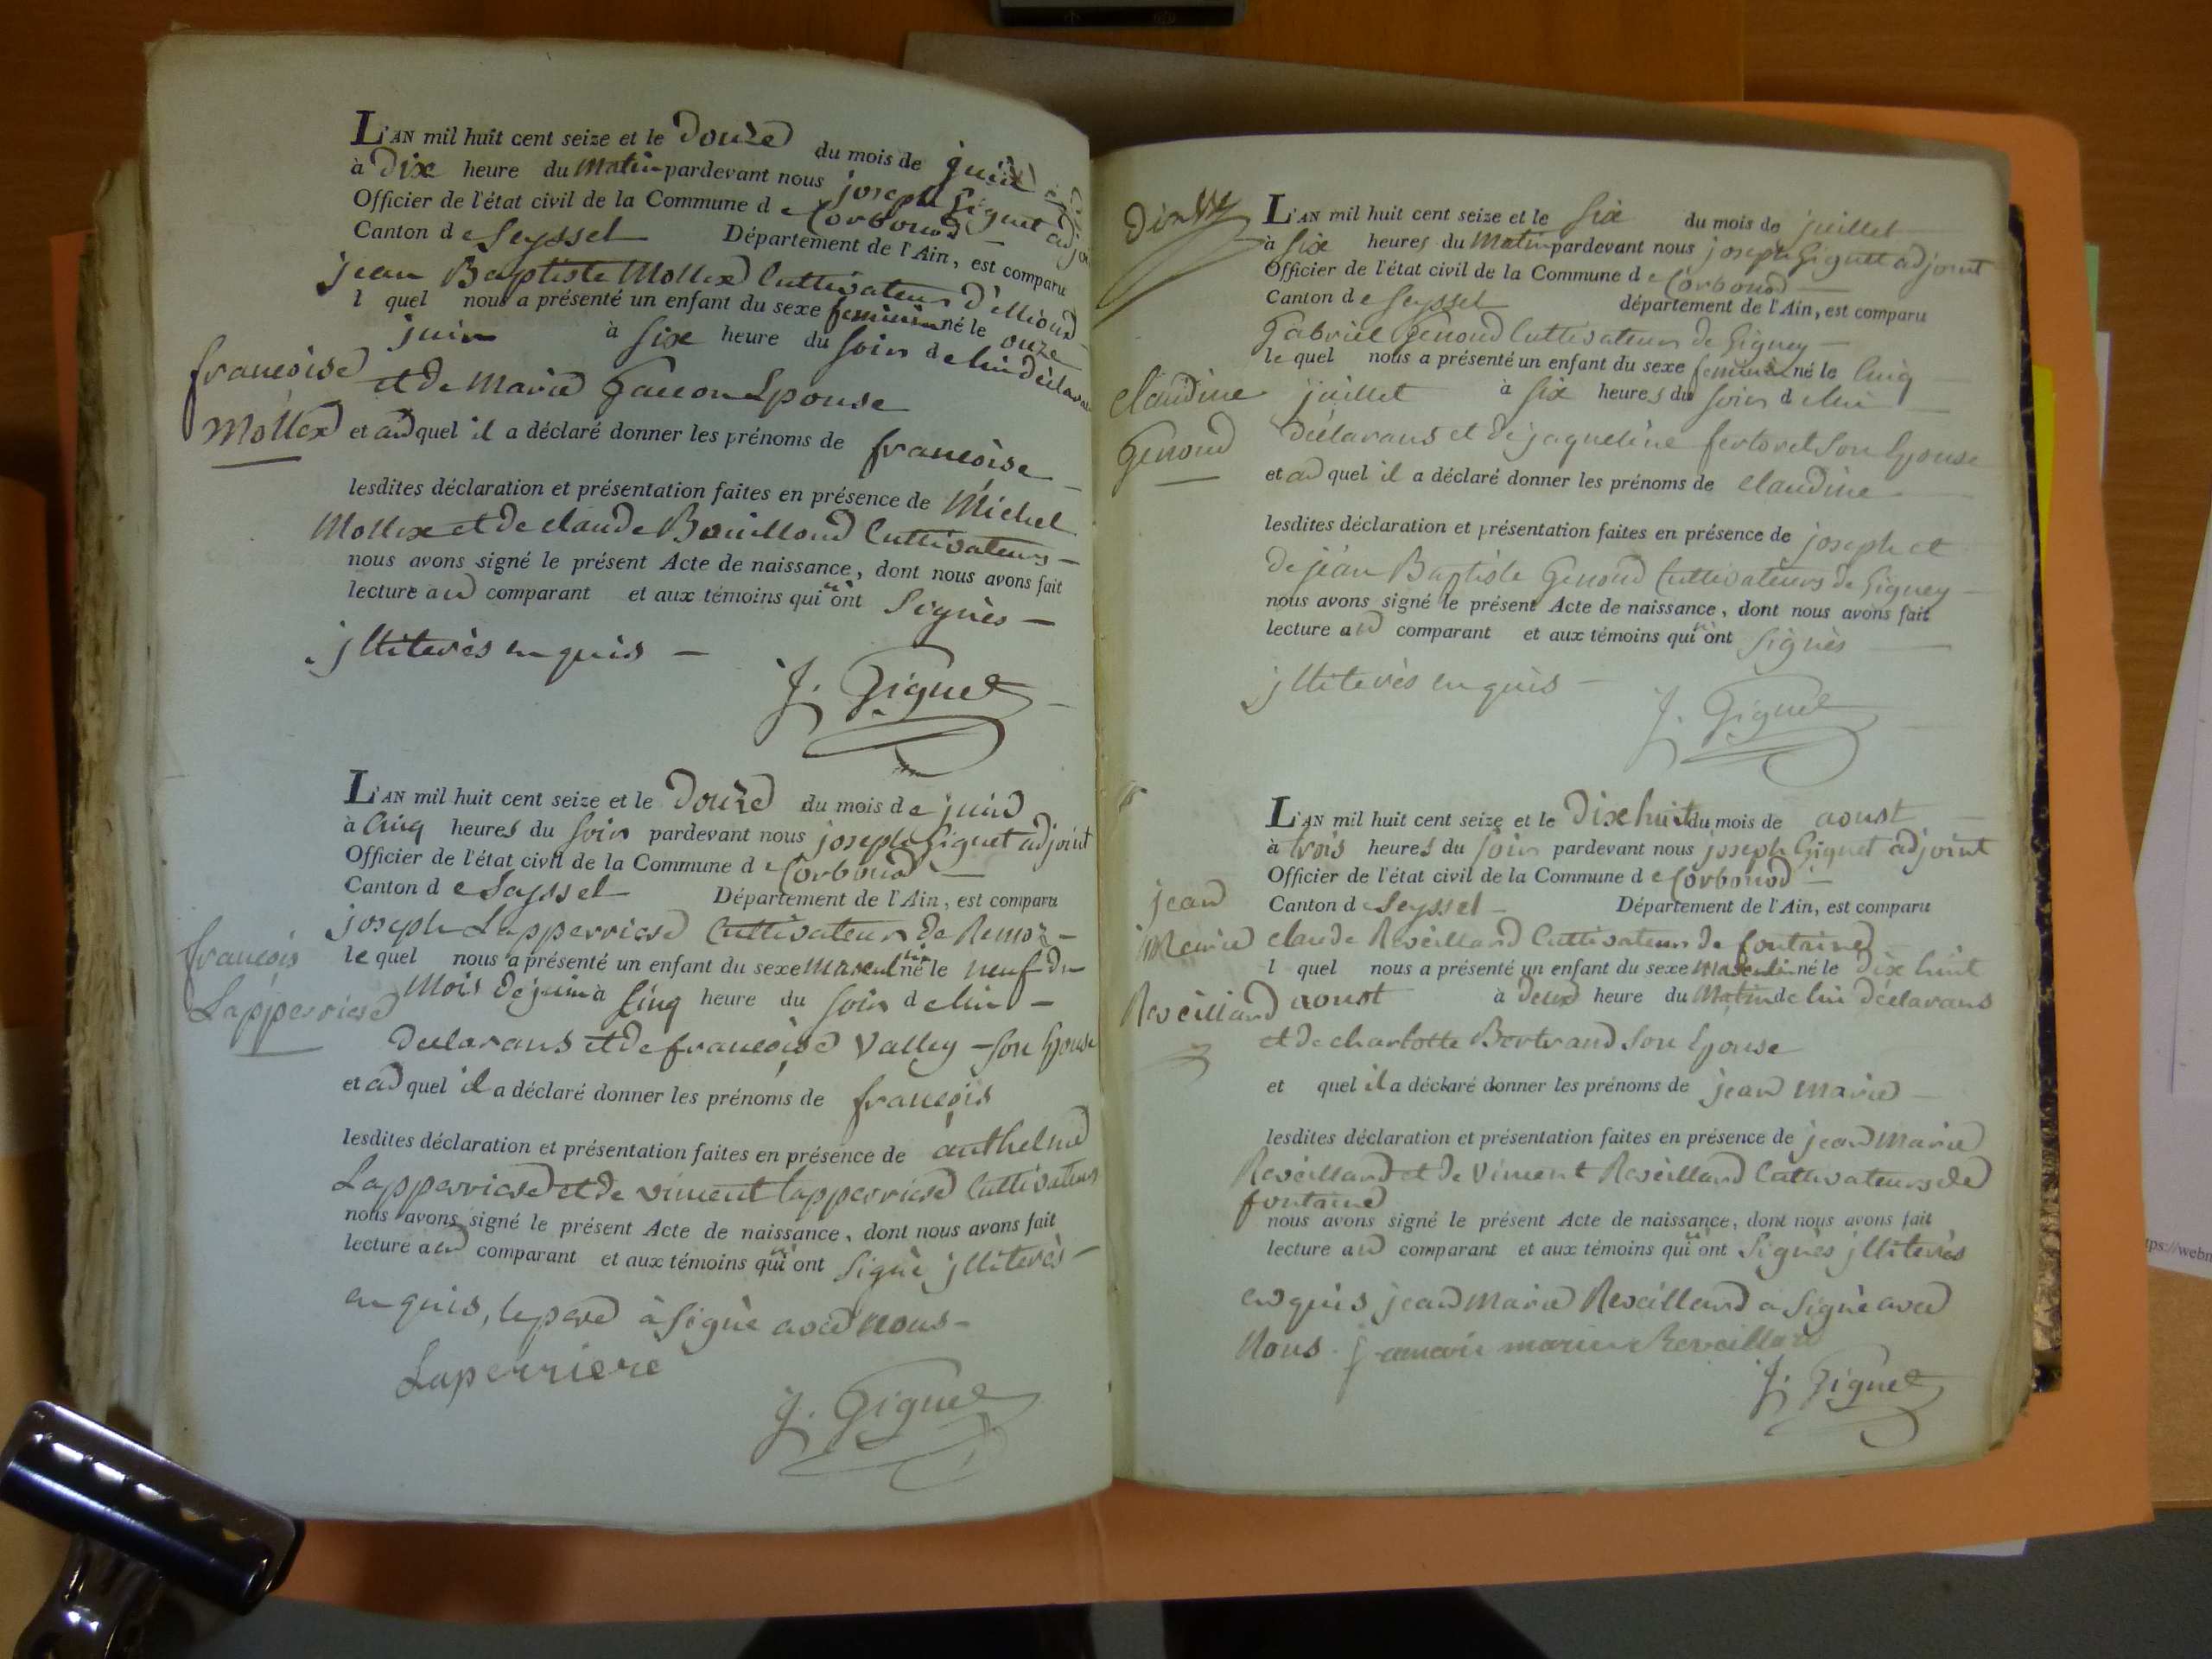 L'AN mil huit cent seize et le douze du mois de juin
à dix heure du matin pardevant nous joseph Giguet adjoint
Officier de l'état civil de la Commune de Corbonod
Canton de Seyssel Département de l'Ain, est comparu
jean Baptiste Mollex Cultivateur
l quel nous a présenté un enfant du sexe feminin né le onze
juin à six heure du soir de lui déclarant
françoise
et de Marie Epouse
Mollex
et au quel il a déclaré donner les prénoms de françoise
lesdites déclaration et présentation faites en présence de Michel
Mollex et de claude Bouillond Cultivateurs
nous avons signé le présent Acte de naissance, dont nous avons fait
lecture au comparant et aux témoins qui n'ont Signès
jlliterès enquis
J. Giguet
L'AN mil huit cent seize et le douze du mois de juin
à cinq heures du soir pardevant nous joseph Giguet adjoint
Officier de l'état civil de la Commune de Corbonod
Canton de Seyssel Département de l'Ain, est comparu
joseph Lapperriere Cultivateur de Remoz
françois
le quel nous a présenté un enfant du sexe masculin né le neuf du
Mois de juin à Cinq heure du soir de lui
Lapperriere
declarans et de françoise Valley son Epouse
et au quel il a déclaré donner les prénoms de françois
lesdites déclaration et présentation faites en présence de anthelme
Lapperriere et de vincent Lapperriere Cultivateurs
nous avons signé le présent Acte de naissance, dont nous avons fait
lecture au comparant et aux témoins qui n'ont Signè jlliterès
enquis, le pere à Signè avec nous
Laperriere
J. Giguet
L'AN mil huit cent seize et le six du mois de juillet
à six heures du matin pardevant nous joseph Giguet adjoint
Officier de l'état civil de la Commune de Corbonod
Canton de Seyssel département de l'Ain, est comparu
Gabriel Genoud Cultivateur de Gigney
le quel nous a présenté un enfant du sexe feminin né le cinq
claudine
juillet à six heures du soir de lui
Genoud
déclarans et de jaqueline fertoret son Epouse
et au quel il a déclaré donner les prénoms de claudine
lesdites déclaration et présentation faites en présence de joseph et
de jean Baptiste Genoud Cultivateurs de Gigney
nous avons signé le présent Acte de naissance, dont nous avons fait
lecture au comparant et aux témoins qui n'ont Signès
jlliterès enquis
J. Giguet
L'AN mil huit cent seize et le dix huit du mois de aoust
à trois heures du soir pardevant nous joseph Giguet adjoint
Officier de l'état civil de la Commune de Corbonod
jean
Canton de Seyssel Département de l'Ain, est comparu
Marie
claude Reveillard Cultivateur de fontaine
l quel nous a présenté un enfant du sexe masculin né le dix huit
Reveillard
aoust à deux heure du matin de lui déclarans
et de charlotte Bertrand son Epouse
et quel il a déclaré donner les prénoms de jean marie
lesdites déclaration et présentation faites en présence de jean marie
Reveillard et de vincent Reveillard Cultivateurs de
fontaine
nous avons signé le présent Acte de naissance, dont nous avons fait
lecture au comparant et aux témoins qui n'ont Signès jlliterès
enquis jean marie Reveillard a Signè avec
nous
J. Giguet